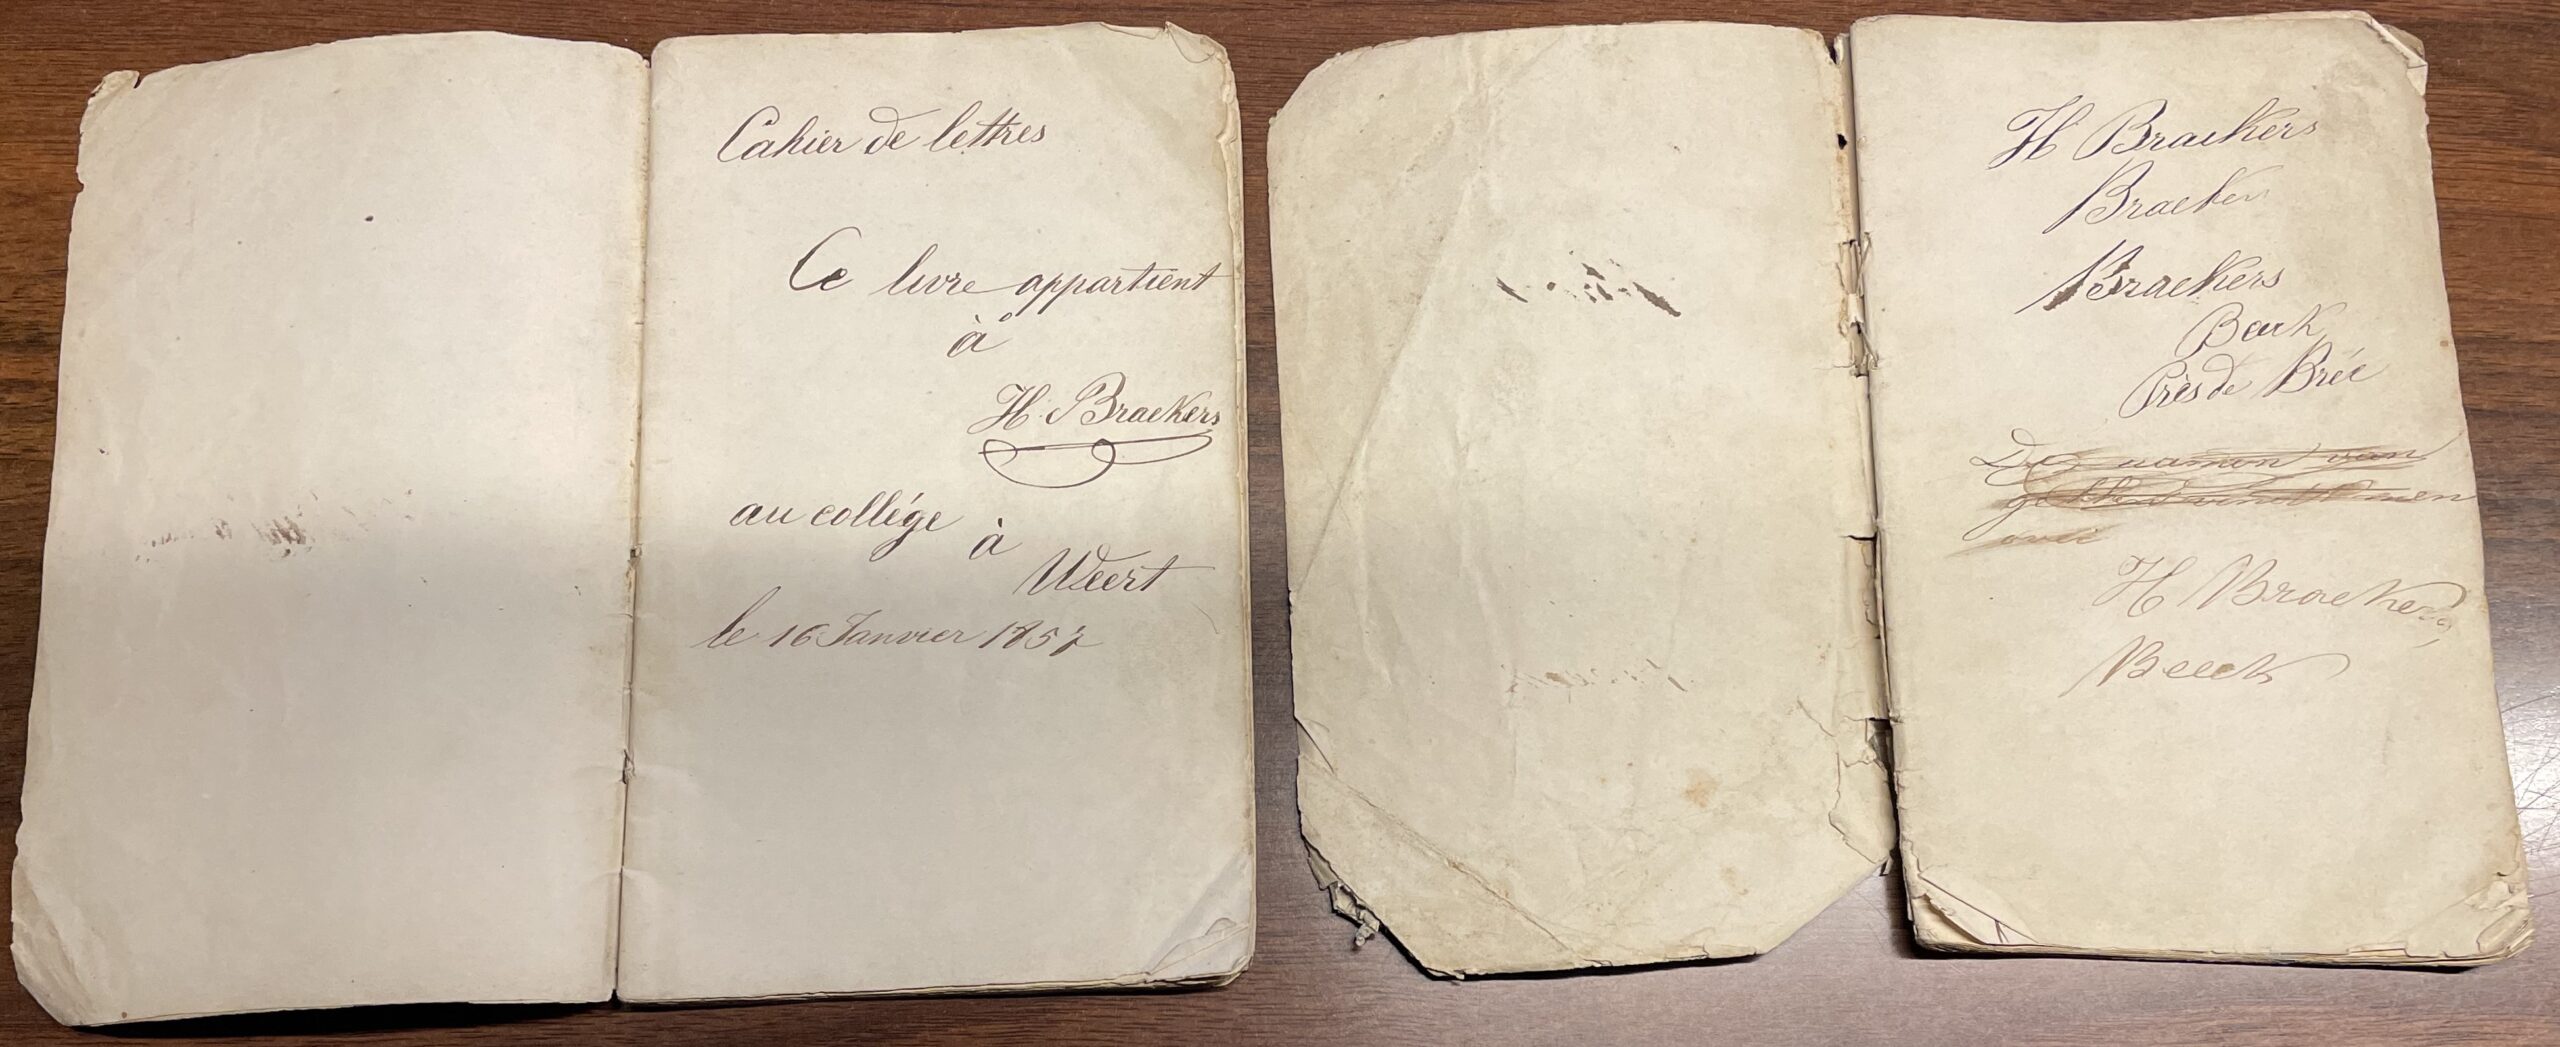 Cahier de lettres
Ce livre appartient
à
H. Braekers
au collége
à
Weert
le 16 Janvier 1857
H Braekers
Braekers
Braekers
Beek
Près de Brée
De namen van
gekken vindt men
over
H Braekers
Beeck